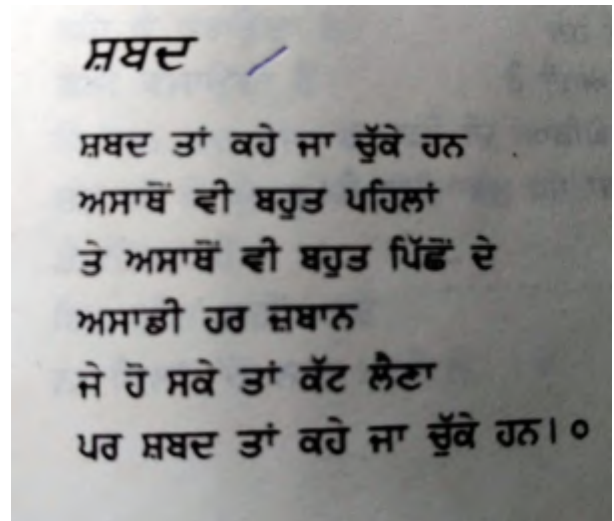 ਸ਼ਬਦ
ਸ਼ਬਦ ਤਾਂ ਕਹੇ ਜਾ ਚੁੱਕੇ ਹਨ
ਅਸਾਥੋਂ ਵੀ ਬਹੁਤ ਪਹਿਲਾਂ
ਤੇ ਅਸਾਥੋਂ ਵੀ ਬਹੁਤ ਪਿੱਛੋਂ ਦੇ
ਅਸਾਡੀ ਹਰ ਜ਼ਬਾਨ
ਜੇ ਹੋ ਸਕੇ ਤਾਂ ਕੱਟ ਲੈਣਾ
ਪਰ ਸ਼ਬਦ ਤਾਂ ਕਹੇ ਜਾ ਚੁੱਕੇ ਹਨ। ੦